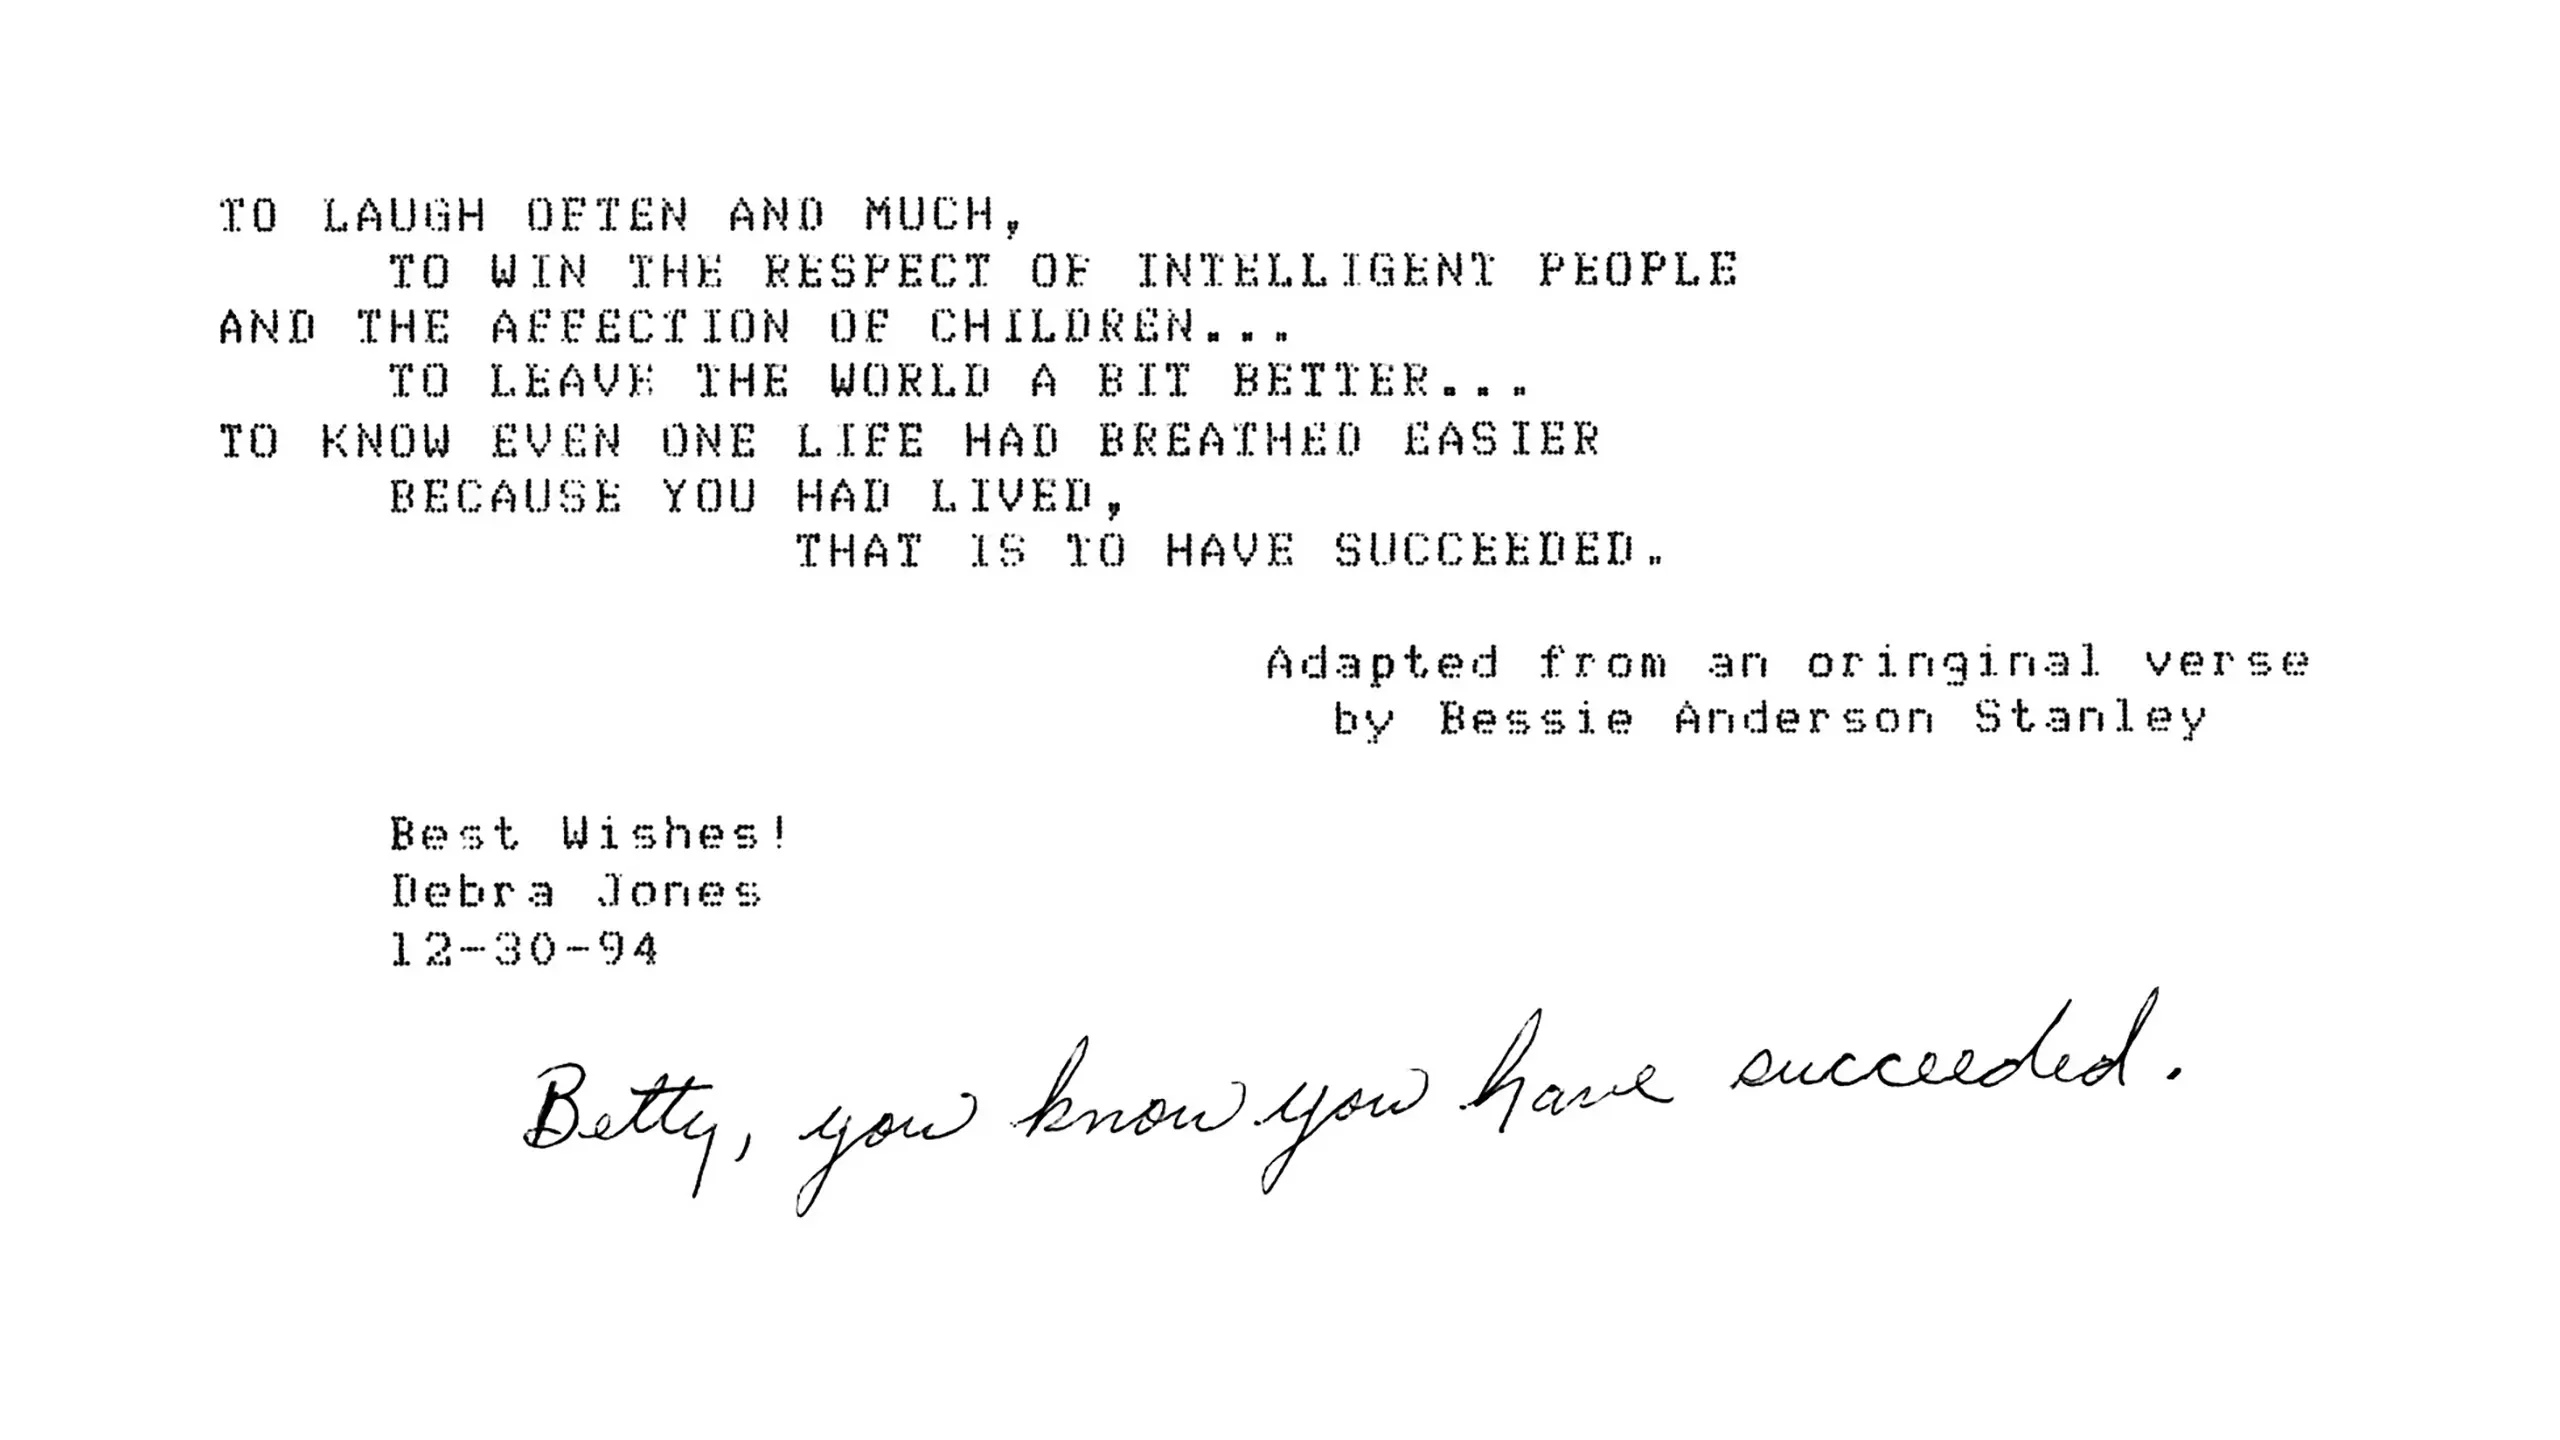 TO LAUGH OFTEN AND MUCH,
TO WIN THE RESPECT OF INTELLIGENT PEOPLE
AND THE AFFECTION OF CHILDREN...
TO LEAVE THE WORLD A BIT BETTER...
TO KNOW EVEN ONE LIFE HAD BREATHED EASIER
BECAUSE YOU HAD LIVED,
THAT IS TO HAVE SUCCEEDED.
Adapted from an oringinal verse
by Bessie Anderson Stanley
Best Wishes!
Debra Jones
12-30-94
Betty, you know you have succeeded.